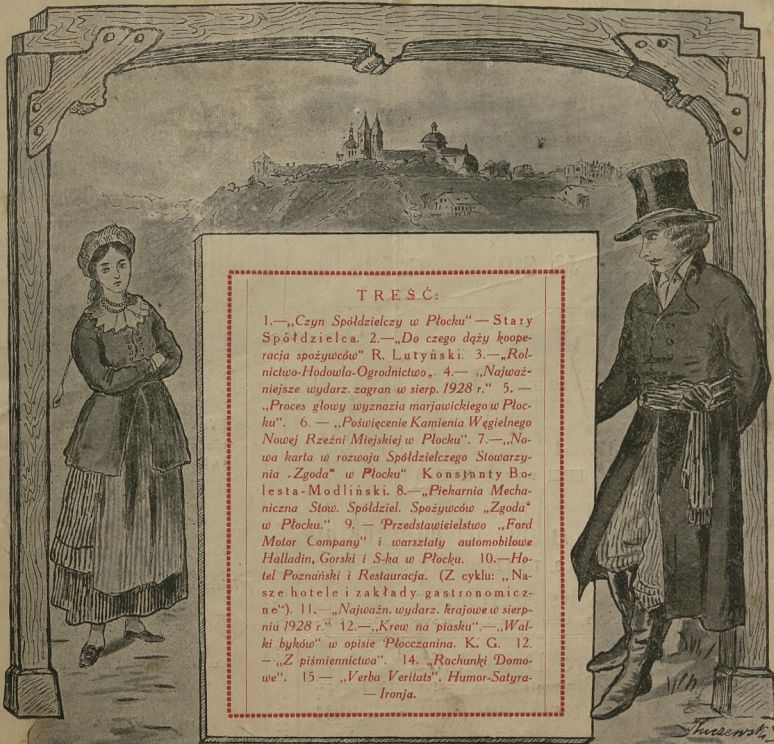 TREŚĆ:
1.—„Czyn Spółdzielczy w Płocku" — Stary
Spółdzielca. 2.—„Do czego dąży koope-
racja spożywców" R. Lutyński. 3.—„Rol-
nictwo-Hodowla-Ogrodnictwo„. 4.— „Najważ-
niejsze wydarz. zagran w sierp. 1928 r." 5. —
„Proces głowy wyznazia marjawickiego w Płoc-
ku". 6. — „Poświęcenie Kamienia Węgielnego
Nowej Rzeźni Miejskiej w Płocku". 7.—„No-
wa karta w rozwoju Spółdzielczego Stowarzy-
nia „Zgoda" w Płocku" Konstanty Bo-
lesta-Modliński. 8.—„Piekarnia Mecha-
niczna Stow. Spółdziel. Spożywców „Zgoda"
w Płocku." 9. — Przedstawieielstwo „Ford
Motor Company" i warsztaty automobilowe
Halladin, Gorski i S-ka w Płocku. 10.—Ho-
tel Poznański i Restauracja. (Z cyklu: „Na-
sze hotele i zakłady gastronomicz-
ne"). 11.—„Najważn. wydarz. krajowe w sierp-
niu 1928 r." 12.—„Krew na piasku".—„Wal-
ki byków" w opisie Płocczanina. K. G. 12.
—„Z piśmiennictwa". 14. „Rachunki Domo-
we". 15 — „Verba Veritats". Humor-Satyra-
—Ironja.